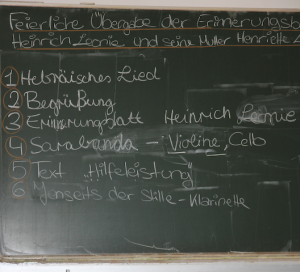 Feierliche Übergabe der Erinnerungsb
Heinrich Leonie und seine Mutter Henriette L
1 Hebräisches Lied
2 Begrüßung
3 Erinnerungsblatt Heinrich Leonie
4 Sarabanda - Violine, Cello
5 Text "Hilfeleistung"
6 "Jenseits der Stille - Klarinette